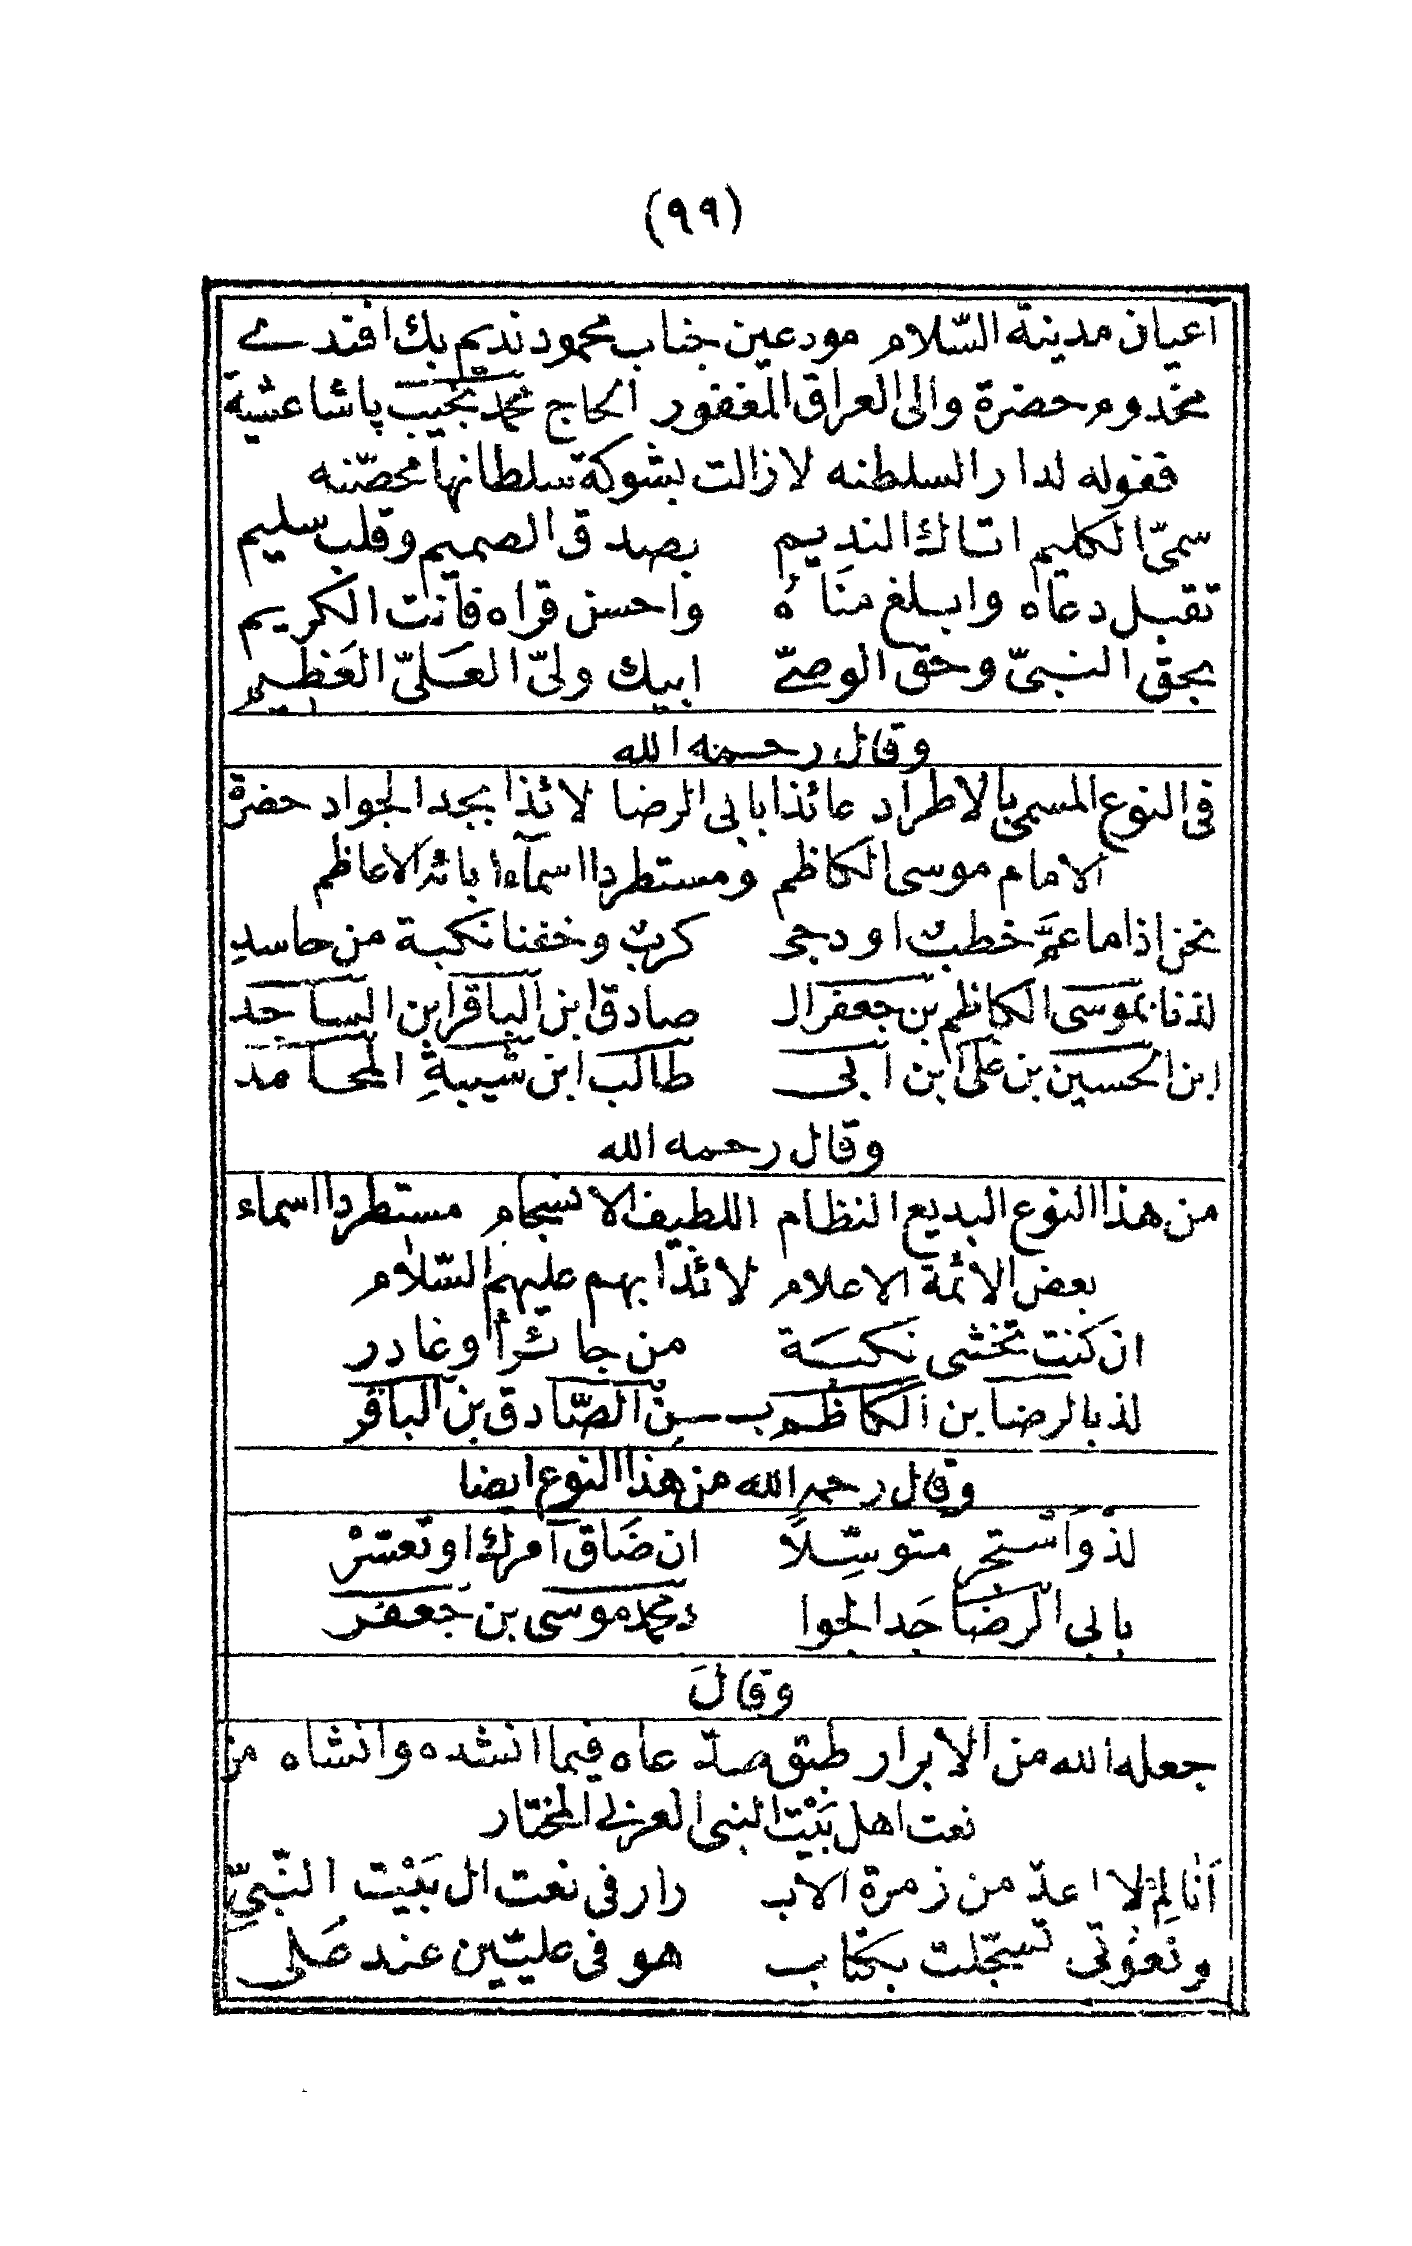 (٩٩)
اعيان مدينة السّلام مودعين جناب محمود نديم بك افندے
مخدوم حضرة والى العراق المغفور الحاج محمد نجيب پاشا عشية
قفوله لدار السلطنه لازالت بشوكة سلطانها محصّنه
سمىّ الكليم اتاك النديم بصدق الصميم وقلب سليم
تقبل دعاه وابلغ مناه واحسن قراه فانت الكريم
بحق النبىّ وحق الوصىّ ابيك ولىّ العلىّ العظيم
وقال رحمه الله
فى النوع المسمى بالاطراد عائذا بابى الرضا لائذا بجد الجواد حضرة
الامام موسى الكاظم ومستطردا اسماء ابائه الاعاظم
نحن اذا ما عمَّ خطبٌ او دجى كربٌ وخفنا نكبة من حاسدِ
لذنا بموسى الكاظم بن جعفر ال صادق ابن الباقر ابن الساجد
ابن الحسين بن على ابن ابى طالب ابن شيبةِ المحامد
وقال رحمه الله
من هذا النوع البديع النظام اللطيف الانسجام مستطردا اسماء
بعض الائمة الاعلام لائذا بهم عليهم السّلام
ان كنت تخشى نكبة من جائر أو غادر
لذ بالرضا بن الكاظم بـ ـن الصّادق بن الباقر
وقال رحمه الله من هذا النوع ايضا
لذْ واسْتجر متوسّلاً ان ضَاق امرك او تعسّرْ
بابى الرضا جَد الجوا د محمد موسى بن جعفر
وقالَ
جعله الله من الابرار طبق صدّ عاه فيما انشده وانشاه من
نعت اهل بَيْت النبى العزلى المختار
أنا لِمْ لا اعدّ من زمرة الاب رار فى نعت ال بَيْت النّبىّ
ونعُوتى تسجّلت بكتاب هو فى عليّين عند عَلى